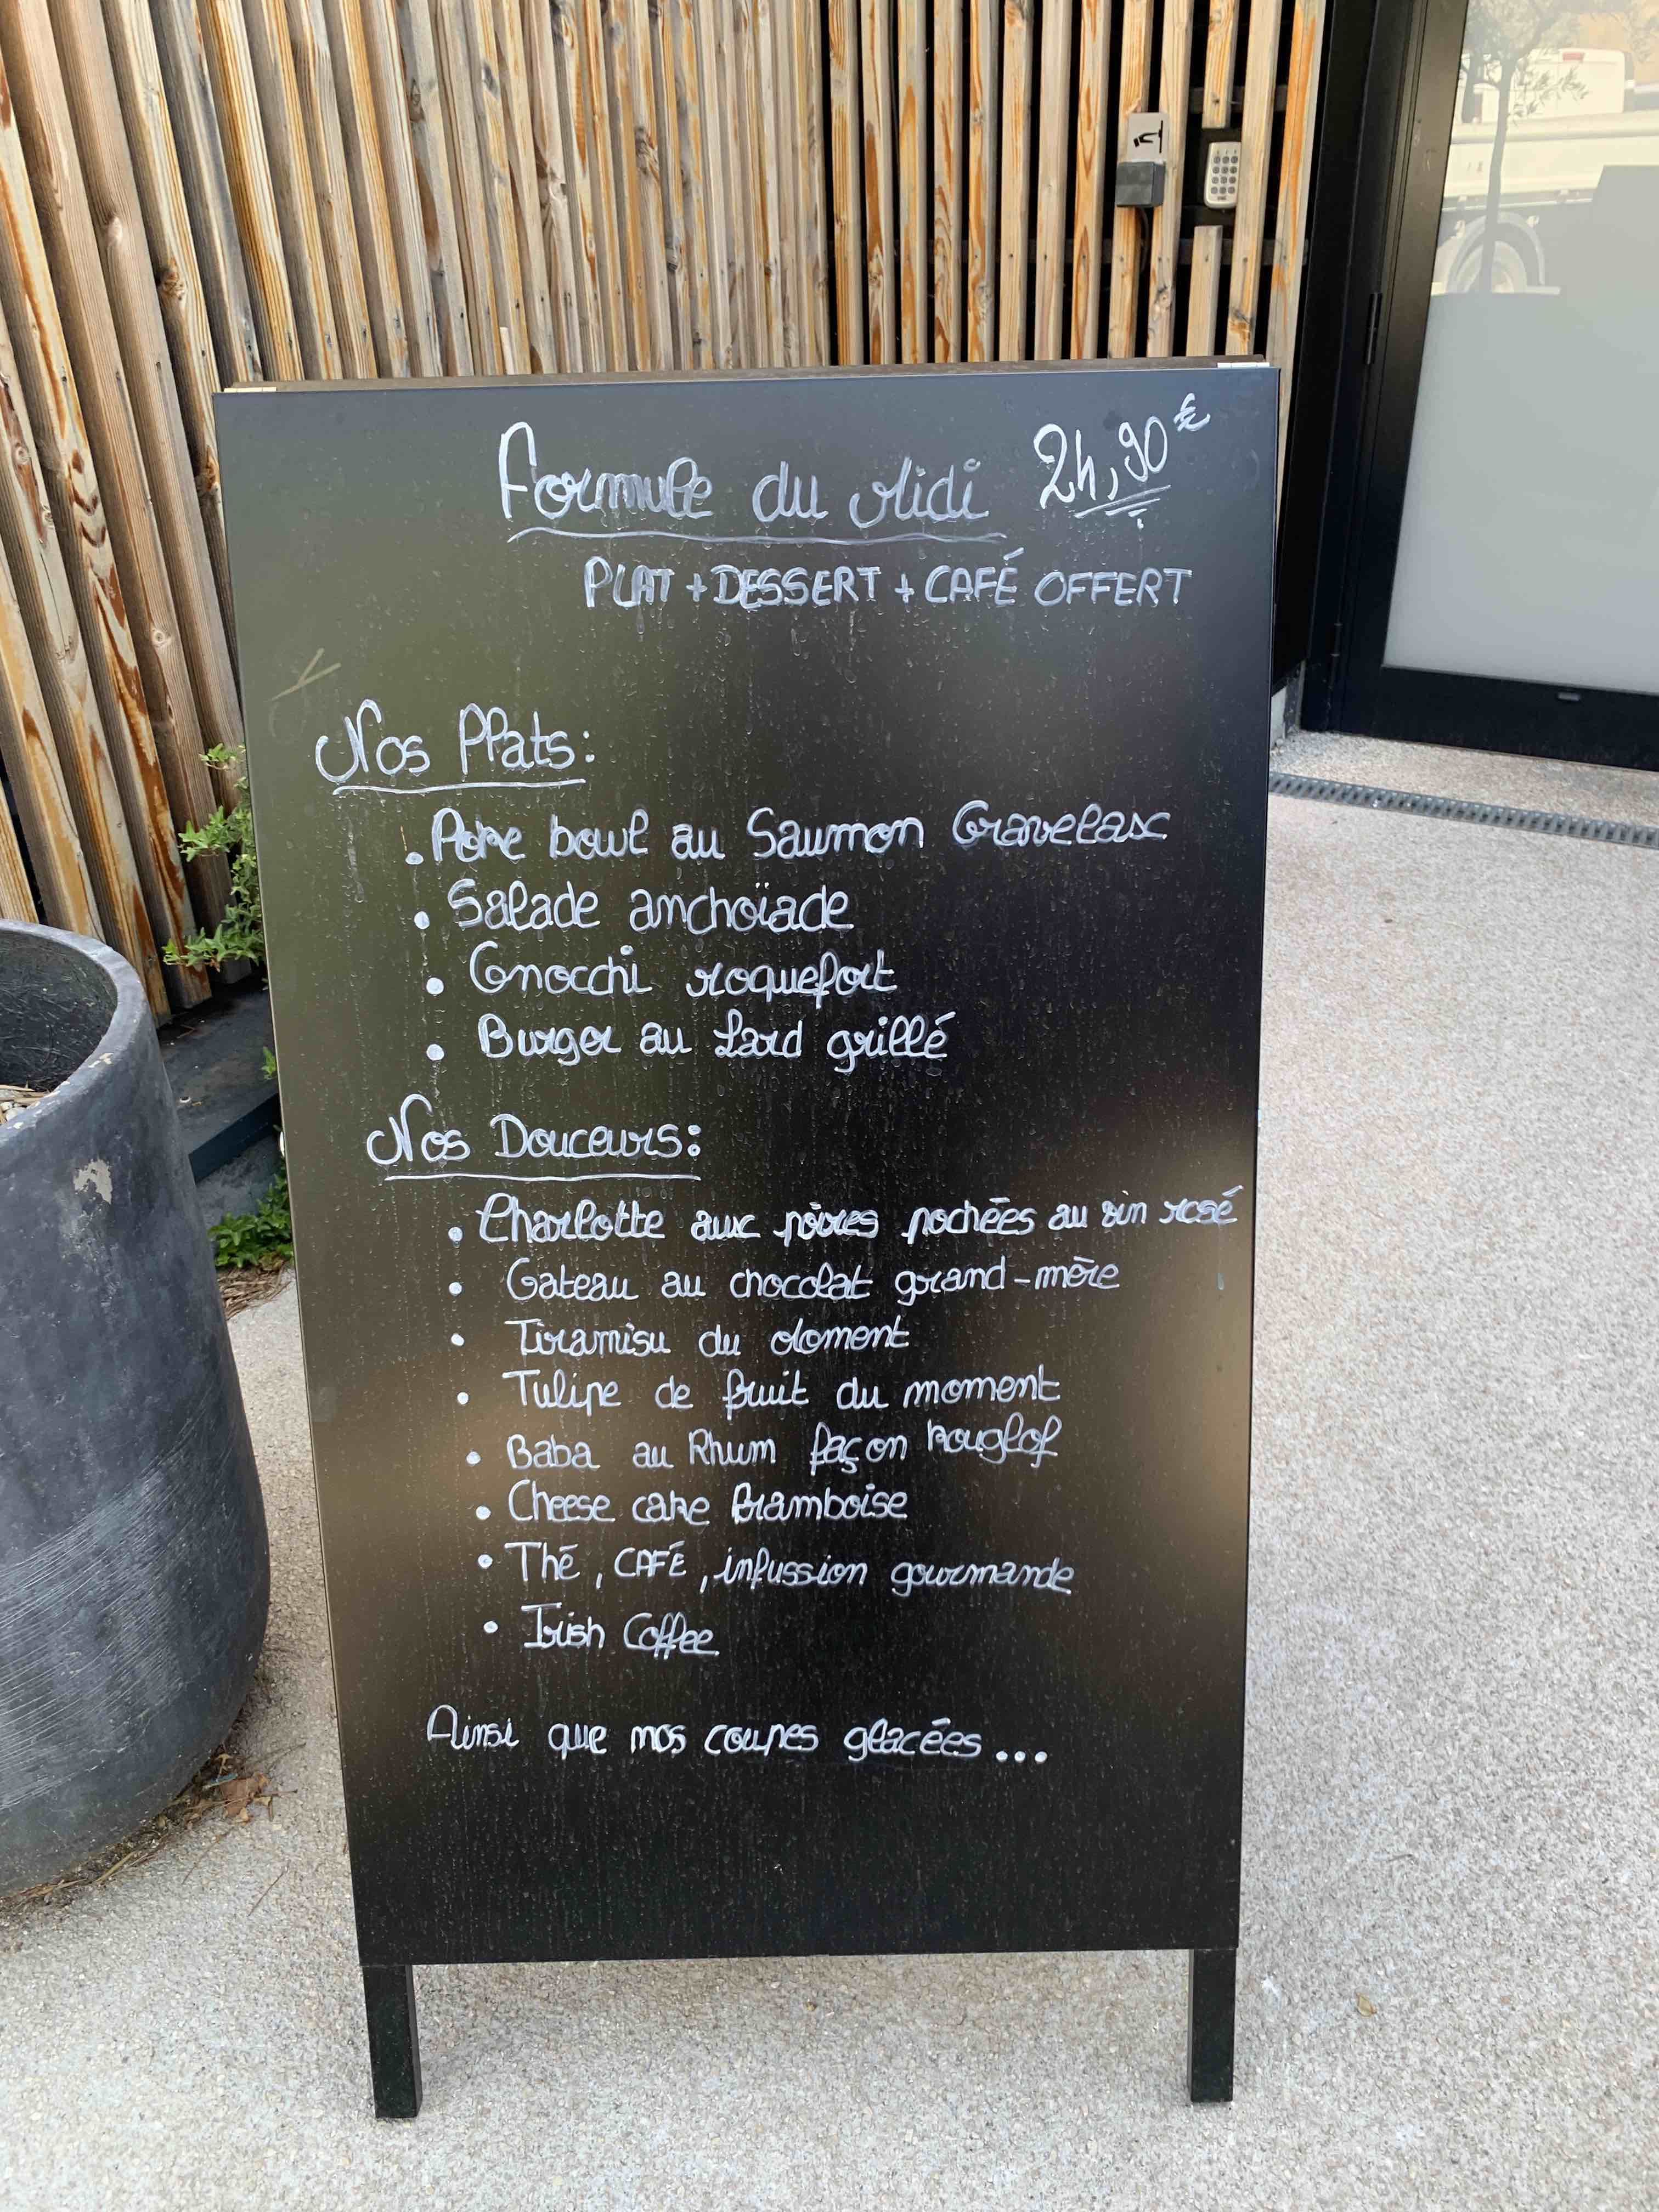 Formule du Midi 24,90€
PLAT + DESSERT + CAFÉ OFFERT
Nos Plats:
• Poke bowl au Saumon Gravelax
• Salade anchoïade
• Gnocchi roquefort
• Burger au Lard grillé
Nos Douceurs:
• Charlotte aux poires pochées au vin rosé
• Gateau au chocolat grand-mère
• Tiramisu du Moment
• Tulipe de fruit du moment
• Baba au Rhum façon kouglof
• Cheese cake framboise
• Thé, CAFÉ, infussion gourmande
• Irish Coffee
Ainsi que nos coupes glacées...